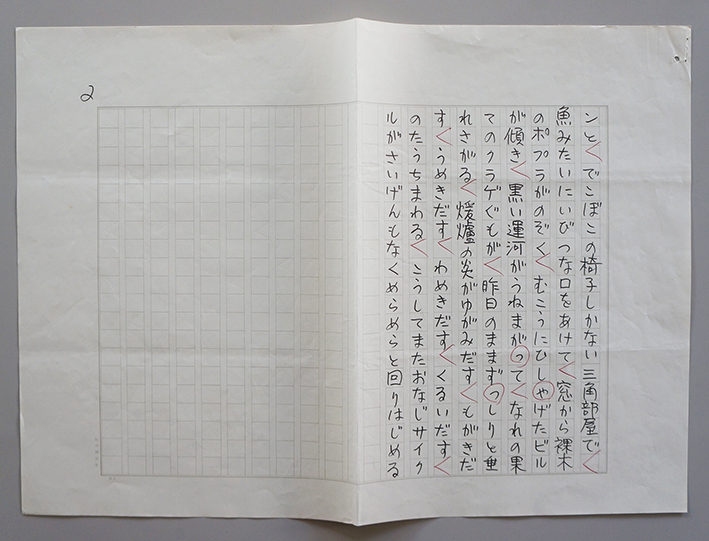 ンと でこぼこの椅子しかない三角部屋で
魚みたいにいびつな口をあけて 窓から裸木
のポプラがのぞく むこうにひしゃげたビル
が傾き 黒い運河がうねまがって なれの果
てのクラゲぐもが 昨日のままずっしりと垂
れさがる 煖爐の炎がゆがみだす もがきだ
す うめきだす わめきだす くるいだす
のたうちまわる こうしてまたおなじサイク
ルがさいげんもなくめらめらと回りはじめる
2